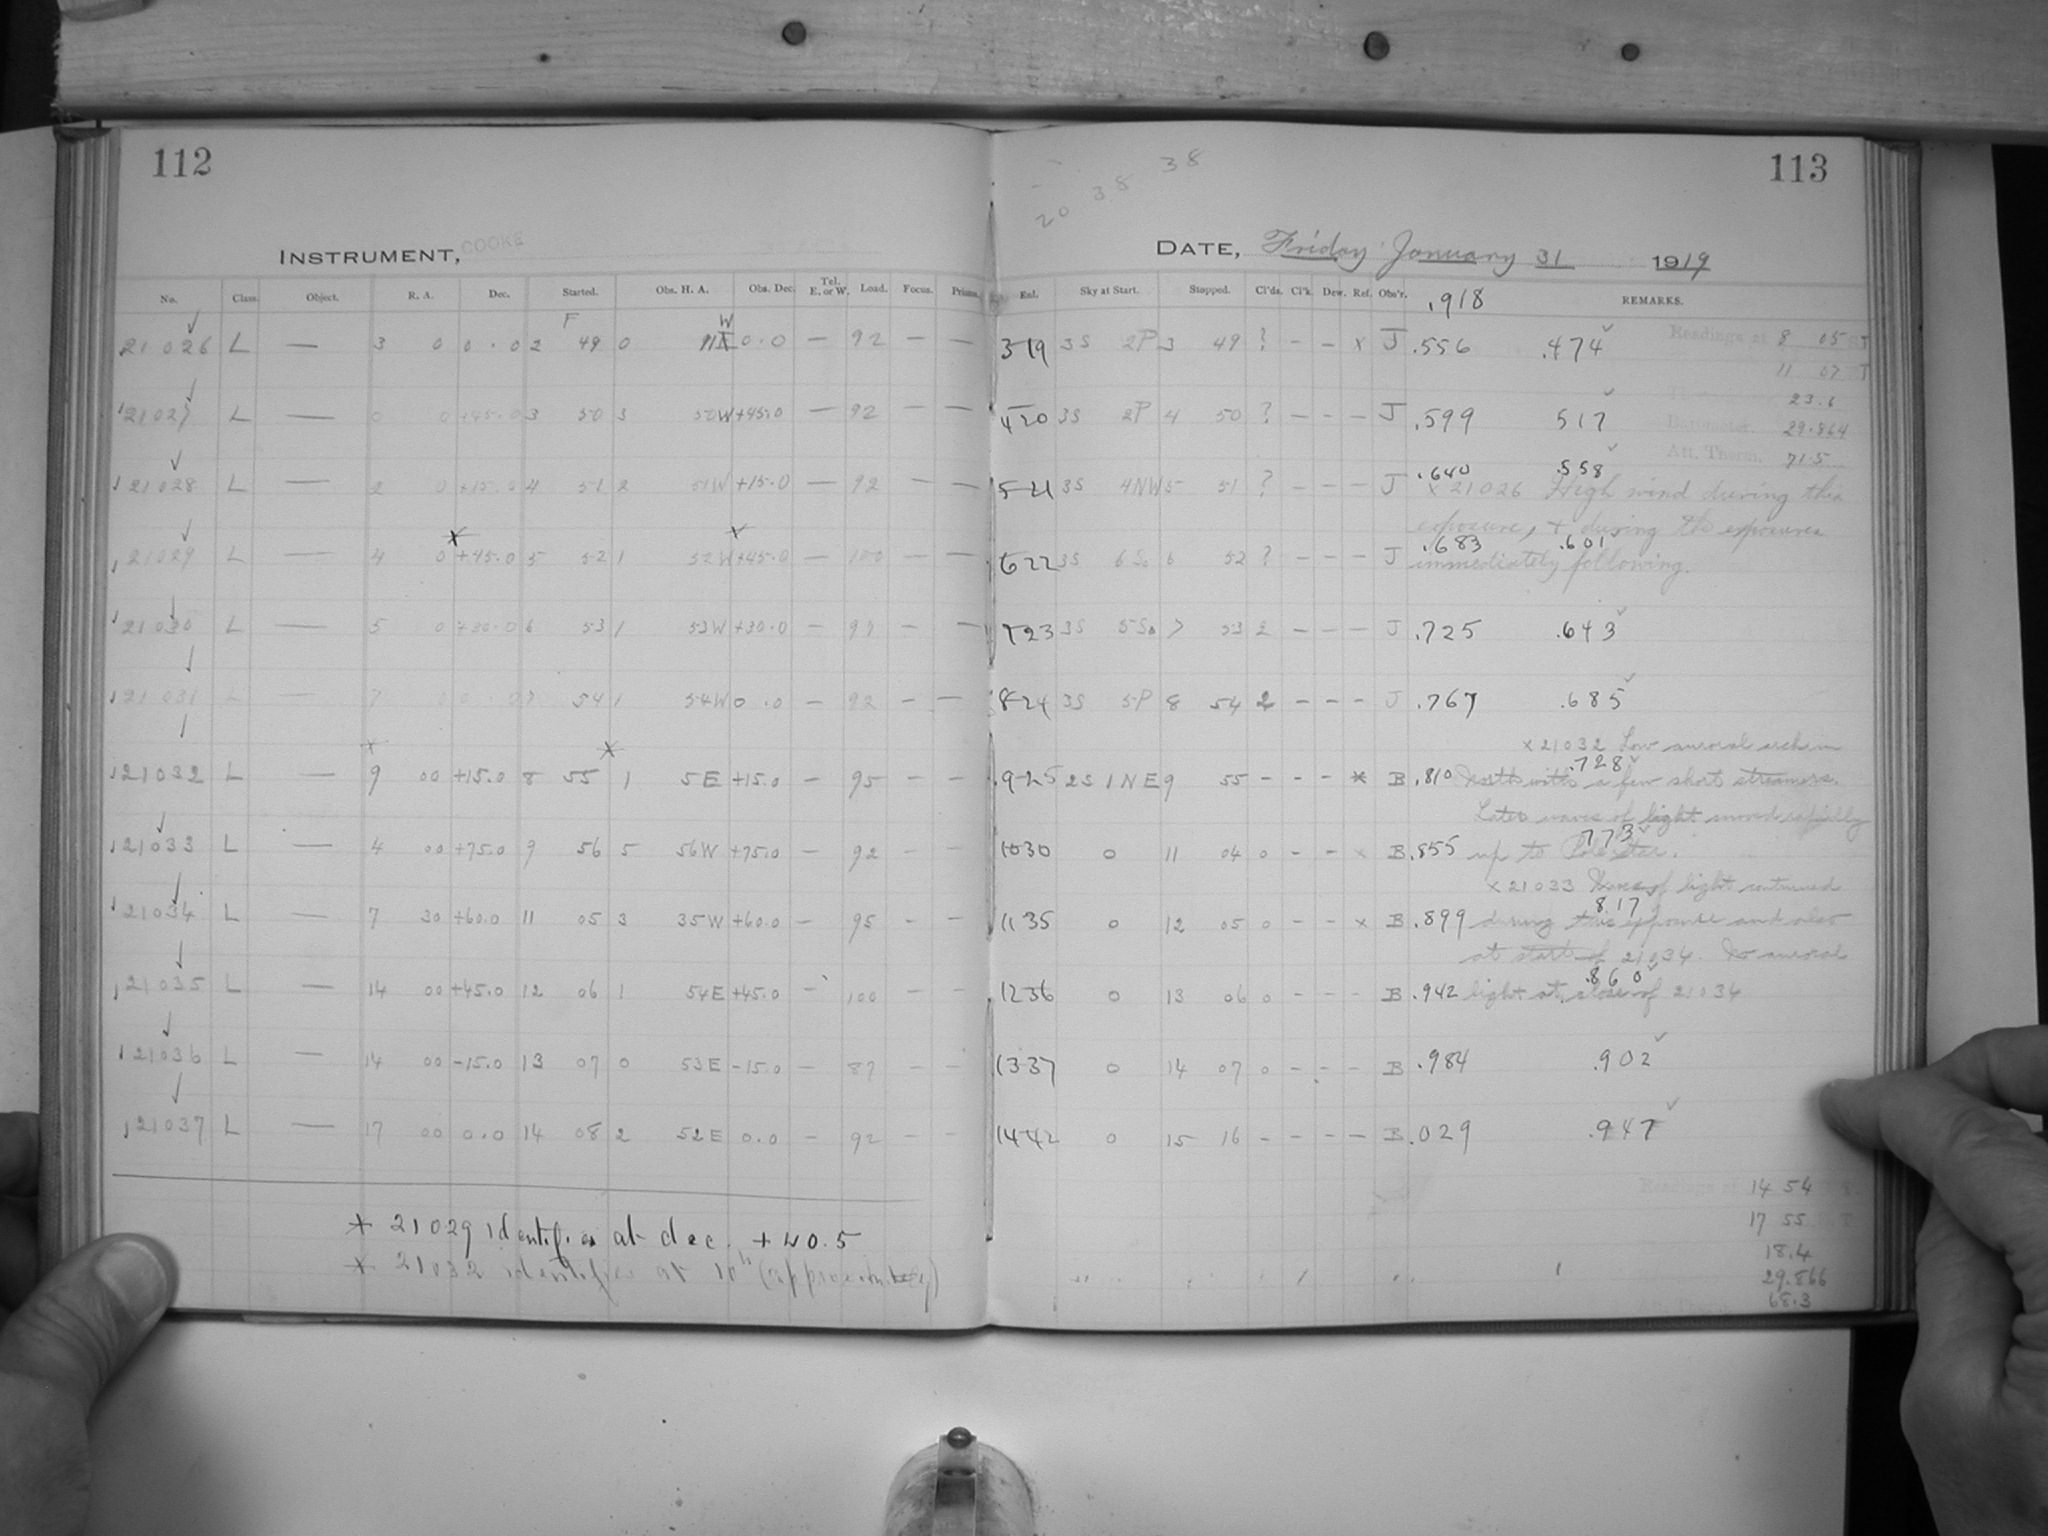 112
INSTRUMENT, COOKE
No. Class. Object. R. A. Dec. Started. Obs. H. A. Obs. Dec. Tel. E. or W. Load. Focus. Prisms.
21026 L — 3 0 0.0 2 49 0 W 0.0 — 92 — —
21027 L — 0 0 +45.0 3 50 3 50W +45.0 — 92 — —
21028 L — 2 0 +15.0 4 51 2 51W +15.0 — 92 — —
21029 L — 4 0 +45.0 5 52 1 52W +45.0 — 100 — —
21030 L — 5 0 +30.0 6 53 1 53W +30.0 — 97 — —
21031 L — 7 0 0.0 7 54 1 54W 0.0 — 92 — —
21032 L — 9 00 +15.0 8 55 1 5E +15.0 — 95 — —
21033 L — 4 00 +75.0 9 56 5 56W +75.0 — 92 — —
21034 L — 7 30 +60.0 11 05 3 35W +60.0 — 95 — —
21035 L — 14 00 +45.0 12 06 1 54E +45.0 — 100 — —
21036 L — 14 00 -15.0 13 07 0 53E -15.0 — 87 — —
21037 L — 17 00 0.0 14 08 2 52E 0.0 — 92 — —
* 21029 identifies at dec. +40.5
* 21032 identifies at 10h (approximately)
38
20 38
113
DATE, Friday January 31 1919
Enl. Sky at Start. Stopped. Cl'ds. Cl'k. Dew. Ref. Obs'r. .918 REMARKS.
319 3S 2P 3 49 ? — — x J .556 .474 Readings at 8 05 J
11 07 J
23.1
420 3S 2P 4 50 ? — — — J .599 517 Barometer. 29.864
Att. Therm. 71.5
521 3S 4NW 5 51 ? — — — J .640 .558
x 21026 High wind during this
exposure, + during the exposures
622 3S 6S. 6 52 ? — — — J .683 .601
immediately following.
723 3S 5S. 7 53 2 — — — J .725 .643
824 3S 5P 8 54 2 — — — J .767 .685
x 21032 Low auroral arch in
925 2S 1NE 9 55 — — — * B .810 .728 north with a few short streamers.
Later waves of light moved rapidly
1030 0 11 04 0 — — x B .855 .773 up to Pole Star.
x 21033 Waves of light continued
1135 0 12 05 0 — — x B .899 .817 during this exposure and also
at start of 21034. No auroral
1236 0 13 06 0 — — — B .942 .860 light at close of 21034
1337 0 14 07 0 — — — B .984 .902
1442 0 15 16 — — — — B .029 .947
Readings at 14 54
17 55
18.4
29.866
68.3